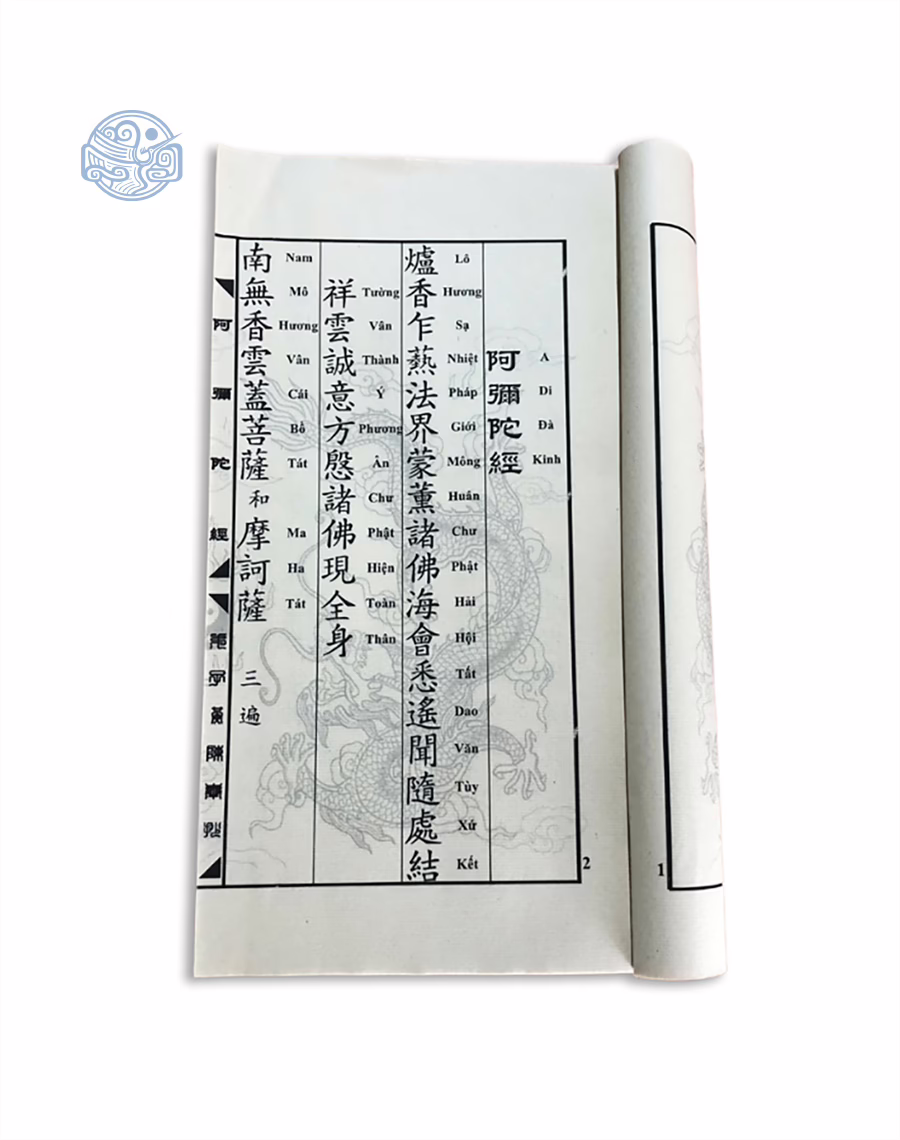 阿彌陀經
A Di Đà Kinh
爐香乍爇法界蒙薰諸佛海會悉遙聞隨處結
Lô Hương Sạ Nhiệt Pháp Giới Mông Huân Chư Phật Hải Hội Tất Dao Văn Tùy Xứ Kết
祥雲誠意方慇諸佛現全身
Tường Vân Thành Ý Phương Ân Chư Phật Hiện Toàn Thân
南無香雲蓋菩薩和摩訶薩 三遍
Nam Mô Hương Vân Cái Bồ Tát Ma Ha Tát
阿彌陀經
2
1